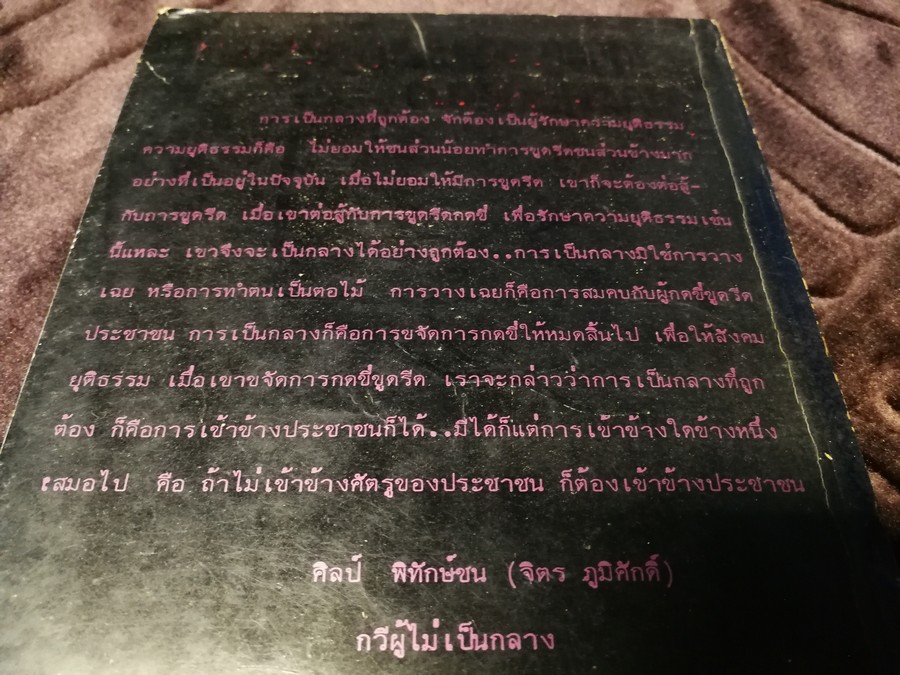 การเป็นกลางที่ถูกต้อง จักต้องเป็นผู้รักษาความยุติธรรม
ความยุติธรรมก็คือ ไม่ยอมให้ชนส่วนน้อยทำการขูดรีดชนส่วนข้างมาก
อย่างที่เป็นอยู่ในปัจจุบัน เมื่อไม่ยอมให้มีการขูดรีด เขาก็จะต้องต่อสู้-
กับการขูดรีด เมื่อเขาต่อสู้กับการขูดรีดกดขี่ เพื่อรักษาความยุติธรรมเช่น
นี้แหละ เขาจึงจะเป็นกลางได้อย่างถูกต้อง..การเป็นกลางมิใช่การวาง
เฉย หรือการทำตนเป็นตอไม้ การวางเฉยก็คือการสมคบกับผู้กดขี่ขูดรีด
ประชาชน การเป็นกลางก็คือการขจัดการกดขี่ให้หมดสิ้นไป เพื่อให้สังคม
ยุติธรรม เมื่อเขาขจัดการกดขี่ขูดรีด เราจะกล่าวว่าการเป็นกลางที่ถูก
ต้อง ก็คือการเข้าข้างประชาชนก็ได้..มีได้ก็แต่การเข้าข้างใดข้างหนึ่ง
เสมอไป คือ ถ้าไม่เข้าข้างศัตรูของประชาชน ก็ต้องเข้าข้างประชาชน
ศิลป์ พิทักษ์ชน (จิตร ภูมิศักดิ์)
กวีผู้ไม่เป็นกลาง